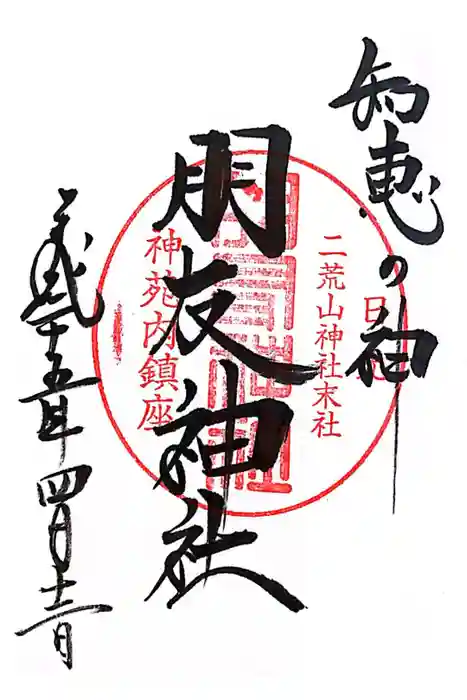 知恵の神
日光
二荒山神社末社
朋友神社
神苑内鎮座
平成二十五年四月十三日